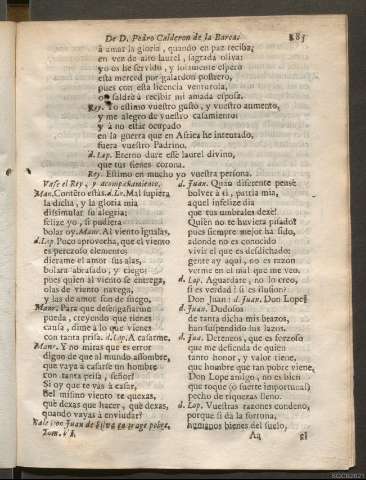 De D. Pedro Calderon de la Barca. 285
à amar la gloria, quando en paz reciba,
en vez de alto laurel, sagrada oliva:
yo os he servido, y solamente espero
esta merced por galardon postrero,
pues con esta licencia venturosa,
oy saldrè à recibir mi amada esposa.
Rey. Yo estimo vuestro gusto, y vuestro aumento,
y me alegro de vuestro casamiento:
y à no estar ocupado
en la guerra que en Africa he intentado,
fuera vuestro Padrino.
d. Lop. Eterno dure esse laurel divino,
que tus sienes corona.
Rey. Estimo en mucho yo vuestra persona.
Vase el Rey, y acompañamiento.
Man. Contẽto estàs. d. Lo. Mal supiera
la dicha, y la gloria mia
dissimular su alegria:
felize yo, si pudiera
bolar oy. Manr. Al viento igualas,
d. Lop. Poco aprovecha, que el viento
es perezoso elemento:
dierame el amor sus alas,
bolara abrasado, y ciego:
pues quien al viento se entrega,
olas de viento navega,
y las de amor son de fuego,
Manr. Para que desengañarme
pueda, creyendo que tienes
causa, dime à lo que vienes
con tanta prisa. d. Lop. A casarme.
Manr. Y no miras que es error
digno de que al mundo assombre,
que vaya à casarse un hombre
con tanta prisa, señor?
Si oy que te vàs à casar,
del mismo viento te quexas,
què dexas que hacer, què dexas,
quando vayas à enviudar?
Sale Don Juan de Silva en trage pobre.
Tom. VI.
d. Juan. Quàn diferente pensè
bolver à ti, patria mia,
aquel infelize dia
que tus umbrales dexè!
Quièn no te huviera pisado?
pues siempre mejor ha sido,
adonde no es conocido
vivir el que es desdichado:
gente ay aqui, no es razon
verme en el mal que me veo.
d. Lop. Aguardate, no lo creo,
si es verdad? si es ilusion?
Don Juan? d. Juan. Don Lope?
d. Juan. Dudosos
de tanta dicha mis brazos,
han suspendido sus lazos.
d. Jua. Deteneos, que es forzoso
que me defienda de quien
tanto honor, y valor tiene,
que hombre que tan pobre viene,
Don Lope amigo, no es bien
que toque (o suerte importuna!)
pecho de riquezas lleno.
d. Lop. Vuestras razones condeno,
porque si dà la fortuna,
humanos bienes del suelo,
Aa el